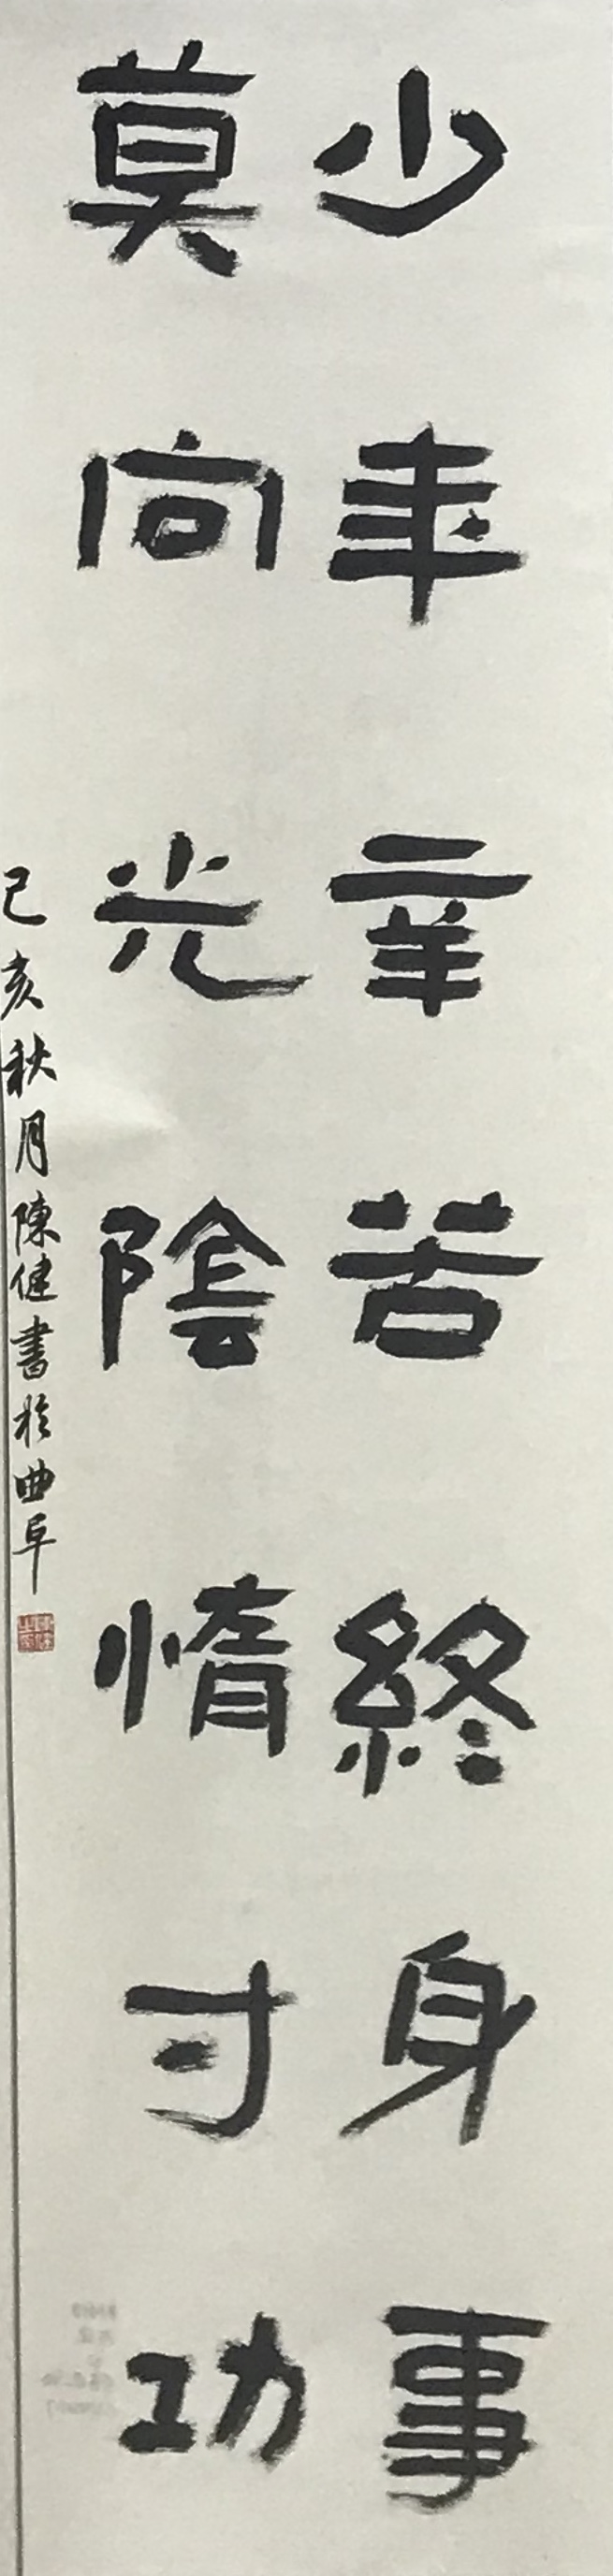 少年辛苦終身事
莫向光陰惰寸功
己亥秋月陳健書於曲阜